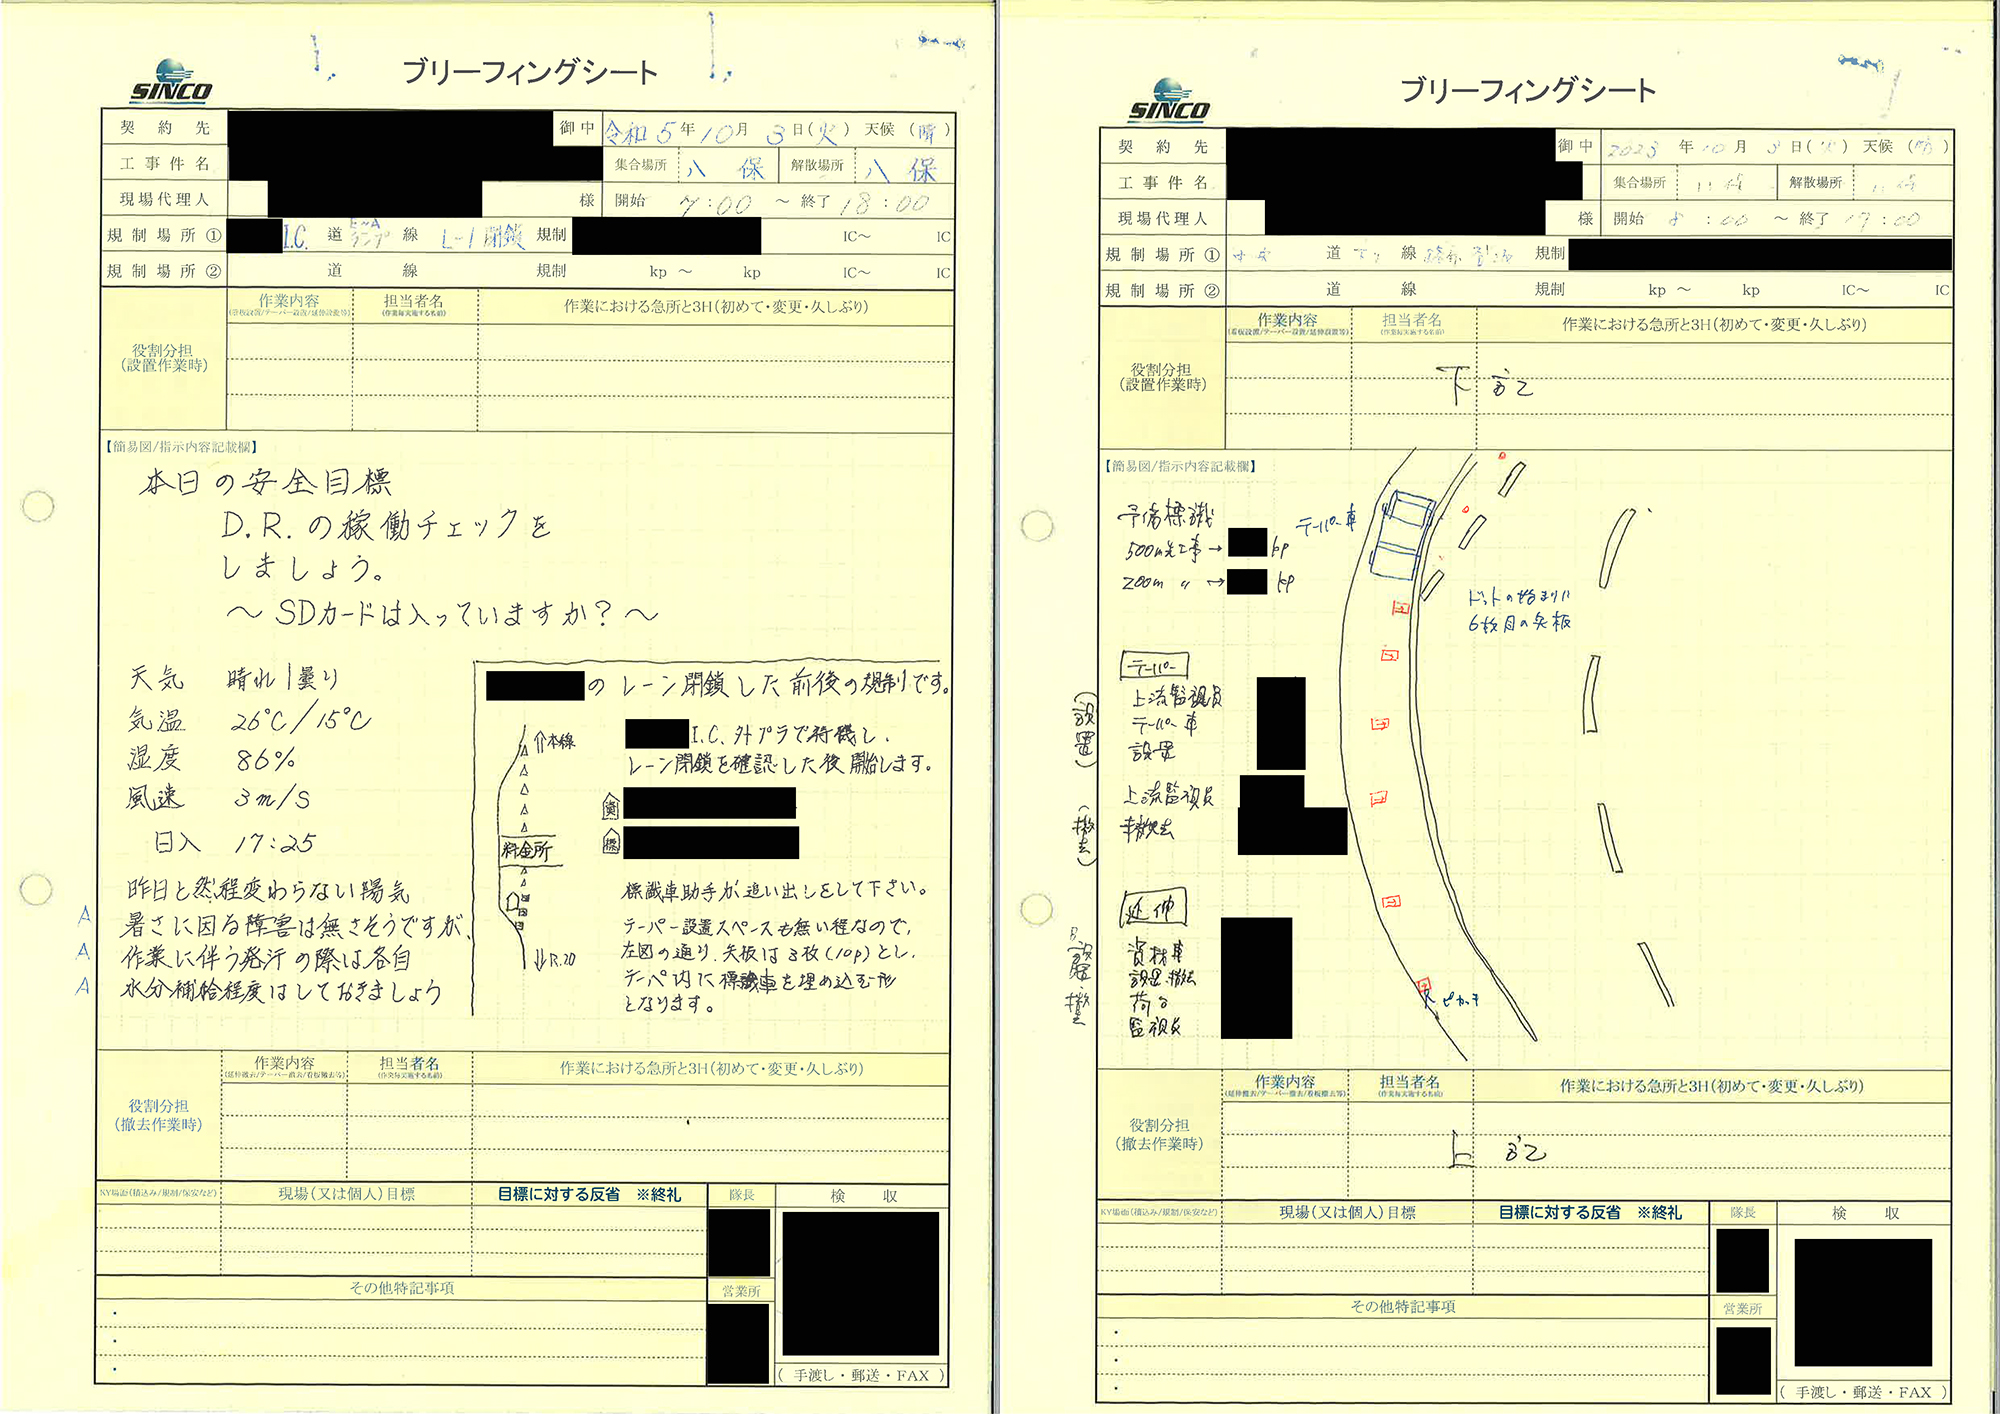 SINCO
ブリーフィングシート
契約先 御中 令和5年10月3日(火) 天候(晴)
工事件名 集合場所 八保 解散場所 八保
現場代理人 様 開始 7:00 ～ 終了 18:00
規制場所① I.C. 道 E~A ランプ 線 L-1閉鎖 規制 IC～ IC
規制場所② 道 線 規制 kp ～ kp IC～ IC
作業内容 担当者名 作業における急所と3H(初めて・変更・久しぶり)
(看板設置/テーパー設置/延伸設置等) (作業毎実施する名前)
役割分担
(設置作業時)
【簡易図/指示内容記載欄】
本日の安全目標
D.R.の稼働チェックを
しましょう。
～SDカードは入っていますか?～
天気 晴れ|曇り
気温 26℃/15℃
湿度 86%
風速 3m/s
日入 17:25
昨日と然程変わらない陽気
A 暑さに因る障害は無さそうですが、
A 作業に伴う発汗の際は各自
A 水分補給程度はしておきましょう
のレーン閉鎖した前後の規制です。
本線
I.C.外プラで待機し、
レーン閉鎖を確認した後開始します。
資
標
料金所
R.20
標識車助手が追い出しをして下さい。
テーパー設置スペースも無い程なので、
左図の通り、矢板は3枚(10p)とし、
テーパ内に標識車を埋め込む形
となります。
作業内容 担当者名 作業における急所と3H(初めて・変更・久しぶり)
(延伸撤去/テーパー撤去/看板撤去等) (作業毎実施する名前)
役割分担
(撤去作業時)
KY場面(積込み/規制/保安など) 現場(又は個人)目標 目標に対する反省 ※終礼 隊長 検収
その他特記事項 営業所
(手渡し・郵送・FAX)
SINCO
ブリーフィングシート
契約先 御中 2023年10月3日(火) 天候(晴)
工事件名 集合場所 解散場所
現場代理人 様 開始 8:00 ～ 終了 17:00
規制場所① 道 線 規制
規制場所② 道 線 規制 kp ～ kp IC～ IC
作業内容 担当者名 作業における急所と3H(初めて・変更・久しぶり)
(看板設置/テーパー設置/延伸設置等) (作業毎実施する名前)
役割分担
(設置作業時)
下
【簡易図/指示内容記載欄】
予備標識
500m先工事→ kp
200m 〃 → kp
テーパー車
ドットの始まりに
6枚目の矢板
テーパー
(設置)
上流監視員
テーパー車
設置
(撤去)
上流監視員
撤去
延伸
資材車
設置・撤去
荷台
監視員
作業内容 担当者名 作業における急所と3H(初めて・変更・久しぶり)
(延伸撤去/テーパー撤去/看板撤去等) (作業毎実施する名前)
役割分担
(撤去作業時)
上
KY場面(積込み/規制/保安など) 現場(又は個人)目標 目標に対する反省 ※終礼 隊長 検収
その他特記事項 営業所
(手渡し・郵送・FAX)